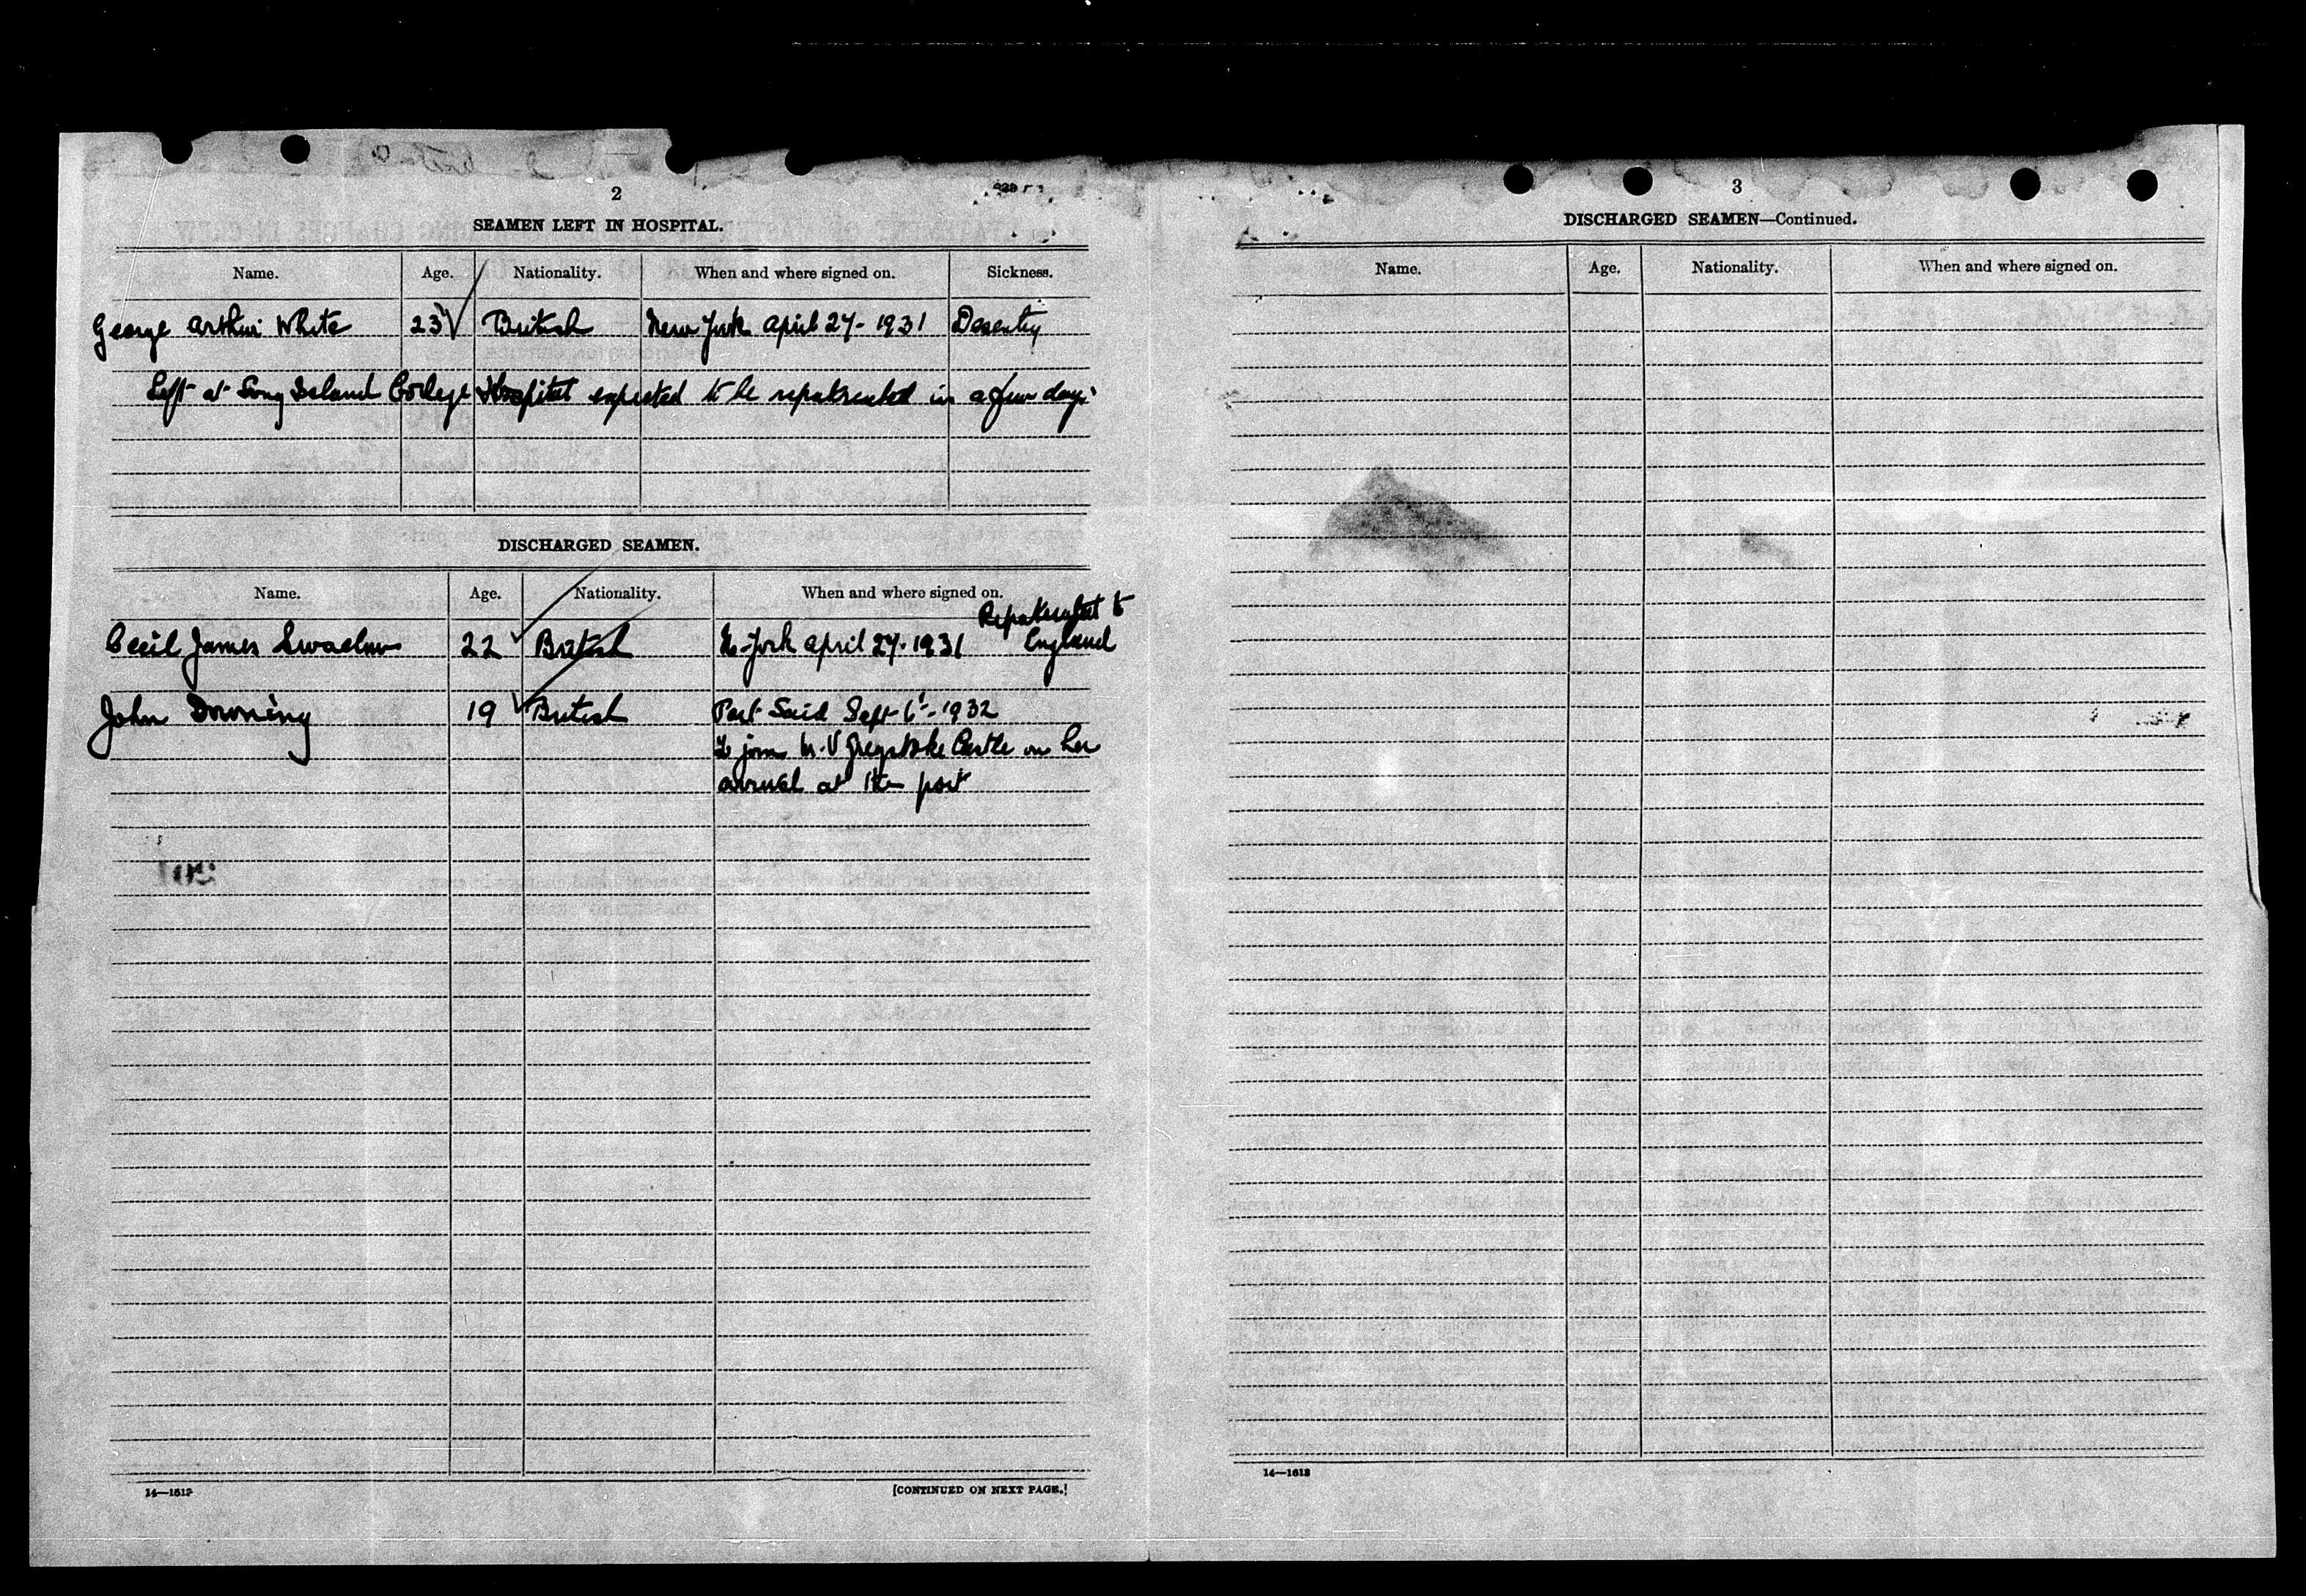 2
SEAMEN LEFT IN HOSPITAL.
Name. Age. Nationality. When and where signed on. Sickness.
George Arthur White 23 British New York April 27-1931 Desentry
Left at Long Island College Hospital expected to be repatriated in a few days
DISCHARGED SEAMEN.
Name. Age. Nationality. When and where signed on.
Repatriated to
Cecil James 22 British N-York April 27-1931 England
John Downing 19 British Port Said Sept 6-1932
To join M.V Greystoke Castle on her
arrival at this port
14—1613
[CONTINUED ON NEXT PAGE.]
3
DISCHARGED SEAMEN—Continued.
Name. Age. Nationality. When and where signed on.
14—1613